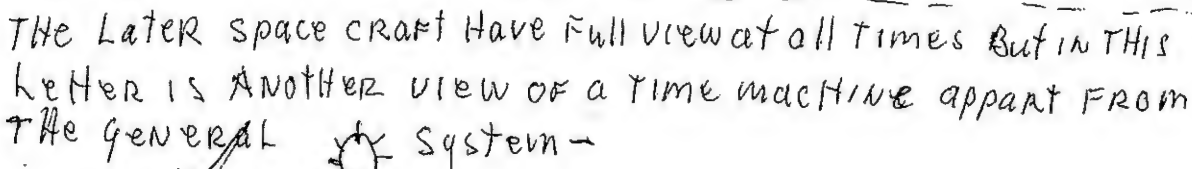 THE LateR space cRaft Have Full view at all Times But iN THis
LetteR is ANotHeR view of a Time macHiNe appaRt FRom
THe geNeRaL system-